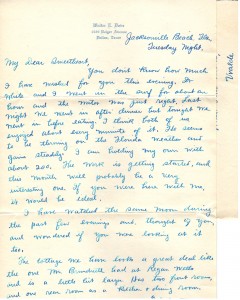 Walter E. Pate
Dallas, Texas
Jacksonville Beach, Fla.
Tuesday Night.
My Dear Sweetheart,
You don't know how much
I have wished for you this evening. Dr.
White and I went in the surf for about an
hour and the water was just right. Last
night we went in after dinner but tonight we
went in before eating. I think both of us
enjoyed about every minute of it. He seems
to be thriving on the Florida weather and
gains steadily. I am holding my own with
about 200. The work is getting started, and
this month will probably be a very
interesting one. If you were here with me,
it would be ideal.
I have watched the same moon during
the past few evenings and thought of you
and wondered if you was looking at it
too.
The cottage we have looks a great deal like
the one Mr. had at
and is a little but large has two front room,
and one rear room as a kitchen & dining room.